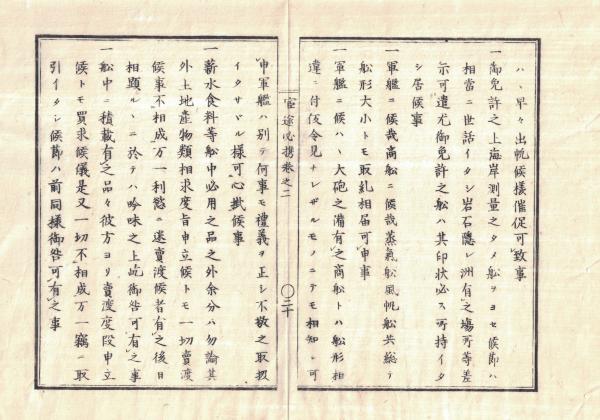 ハヽ早々出帆候様催促可致事
一御免許之上海岸測量之タメ船ヲヨセ候節ハ
相當ニ世話イタシ岩石隠レ洲有之場所等差
示可遣尤御免許之船ハ其印状必ス所持イタ
シ居候事
一軍艦ニ候哉商船ニ候哉蒸氣船風帆船共総テ
船形大小トモ取糺相届可申事
一軍艦ニ候ハヽ大砲之備有之商船トハ船形相
違ニ付仮令見ナレザルモノニテモ相知レ可
官途必携巻之二
〇三十
申軍艦ハ別テ何事モ禮義ヲ正シ不敬之取扱
イタサヾル様可心掛候事
一薪水食料等船中必用之品之外余分ハ勿論其
外土地産物類相求度旨申立候トモ一切賣渡
候事不相成万一利慾ニ迷賣渡候者有之後日
相顕ルヽニ於テハ吟味之上屹御咎可有之事
一船中ニ積載有之品々彼方ヨリ賣渡度段申立
候トモ買求候儀是又一切不相成万一竊ニ取
引イタシ候節ハ前同様御咎可有之事